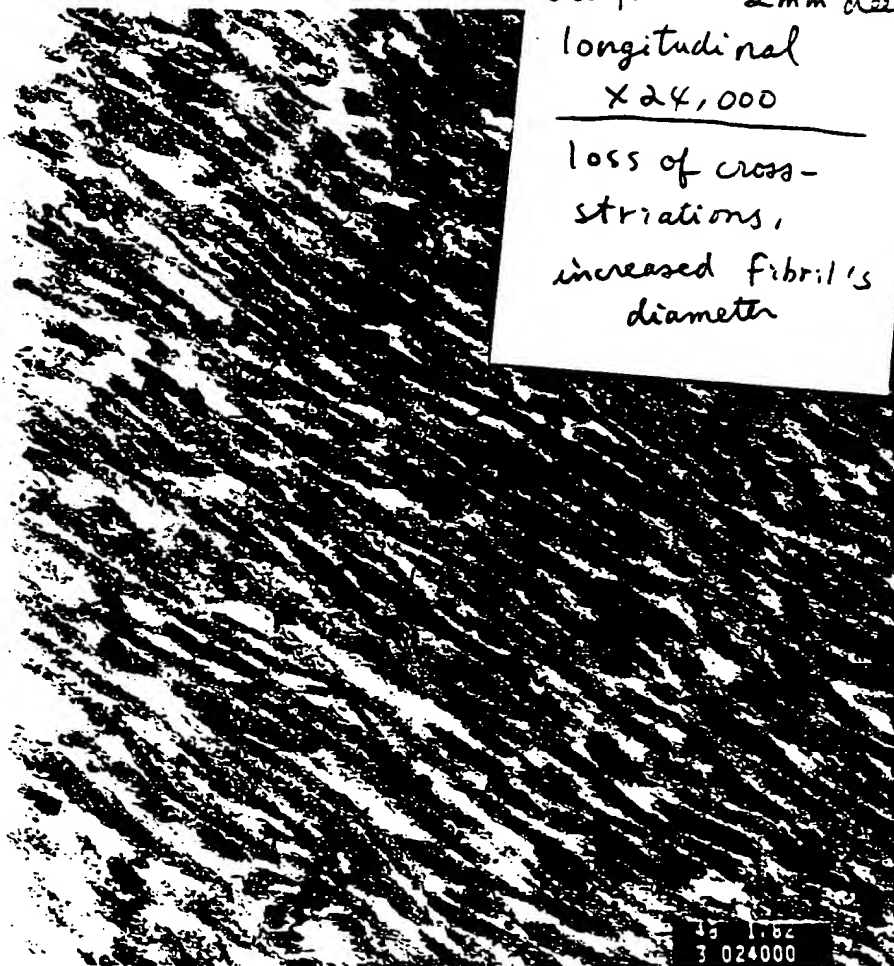 2mm
longitudinal
x24,000
loss of cross-
striations,
increased fibril's
diameter
3 024000